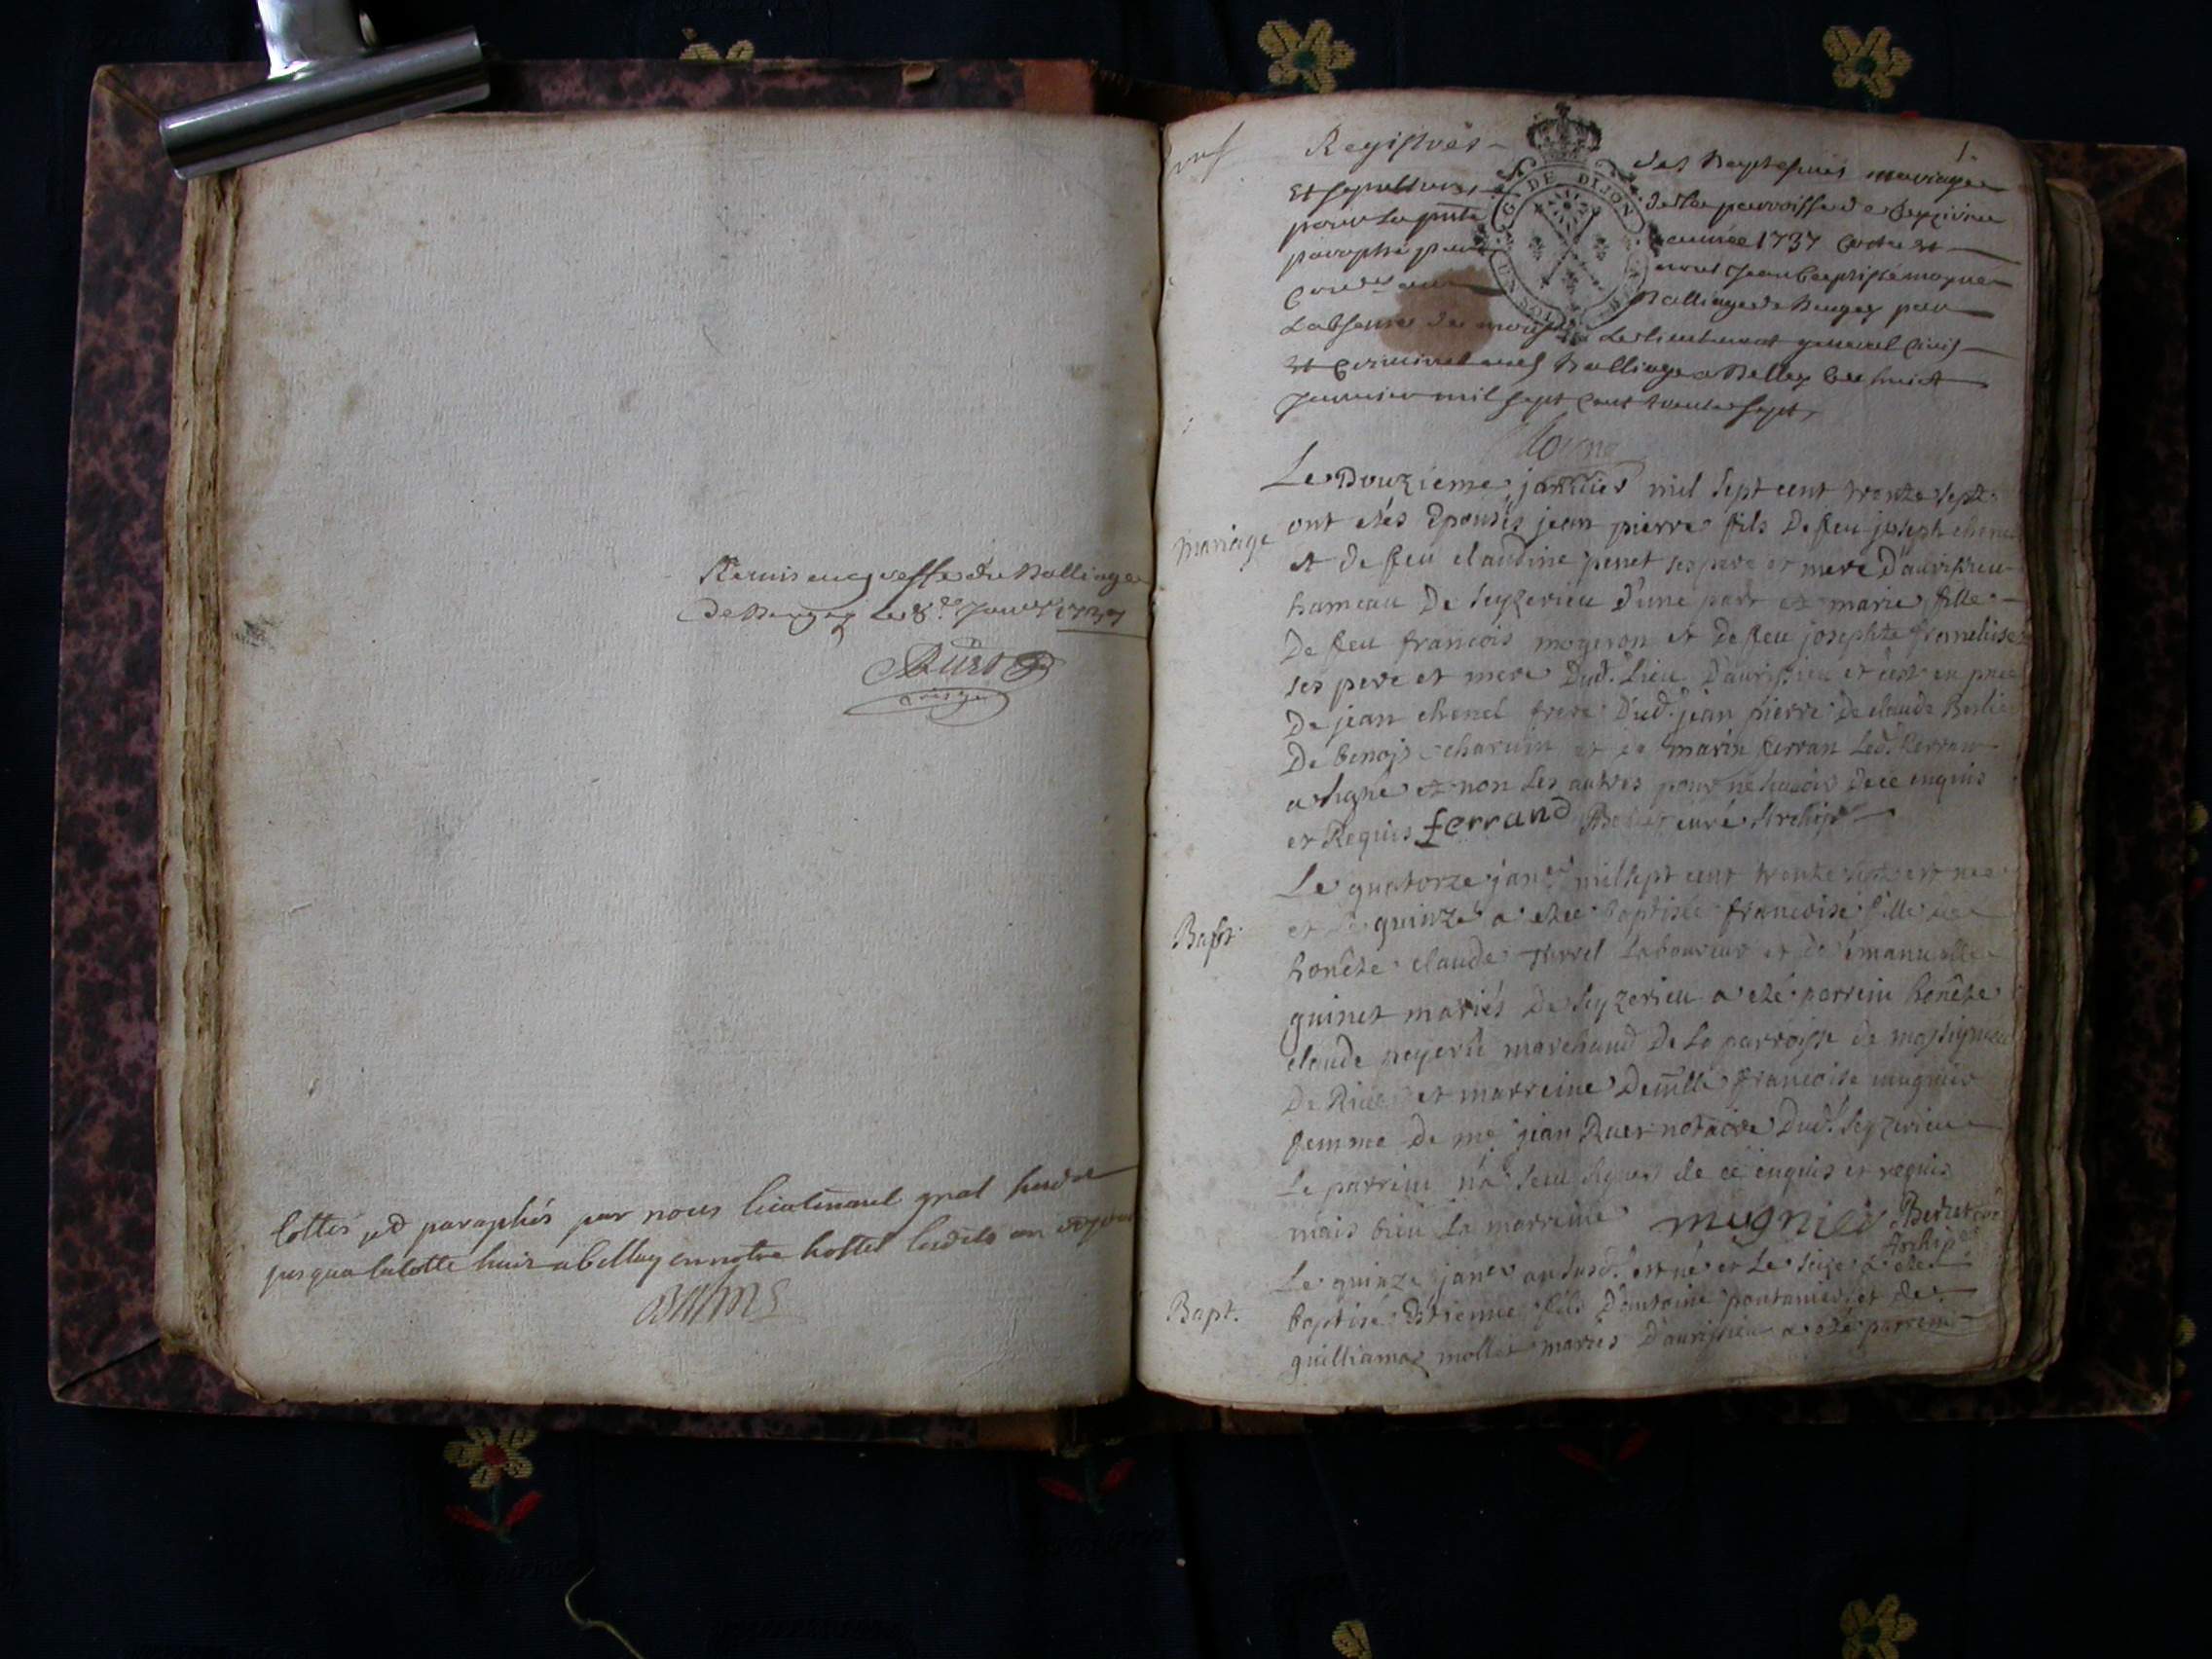 Remis au greffe du Balliage
de Beugey le 8.e Janv.r 1737
cottés et paraphés par nous lieutenant gnal
jusqua la cotte huit a belley en notre hostel lesdits an et jour
1
Registres des Baptesmes mariages
Et sepultures de la parroisse de Seyzerieu
pour La pnte année 1737 Cotté et
paraphé par nous Jean Baptiste moyne
Balliage de Beugey pour
Labsence de Le Lieutenant general Civil
Et Criminel aud Balliage a Belley Ce huict
Janvier mil sept cent trente sept
DE DIJON
Le Douzieme janvier mil sept cent trente sept
mariage
ont etés Epousés jean pierre fils De feu joseph chenel
et de feu claudine penet ses pere et mere D'aurissieu
hameau De Seyzerieu d'une part et marie fille
De feu francois mogeron et de feu josephte
ses pere et mere Dud. Lieu D'aurissieu et c'est en pnce
De jean chenel frere Dud. jean pierre De claude
De benois charvin et de marin ferran Led. ferran
a signé et non Les autres pour ne savoir de ce enquis
et Requis ferrand curé Archip
Le quatorze janer mil sept cent trente sept est nee
Bapt.
et le quinze a etee baptisée francoise fille de
honête claude Laboureur et de emanuelle
guinet mariés De Seyzerieu a eté parrein honête
claude marchand De La parroisse de massignieu
De Rives et marreine Demlle francoise mugnier
femme de me jean notaire Dud. Seyzerieu
Le parrein n'a seu signer de ce enquis et requis
mais bien La marreine mugnier
Archip
Le quinze janer an susd. est né et Le seize a eté
Bapt.
baptisé Etienne fils D'antoine pontanier et de
guilliama mollet mariés D'aurissieu a eté parrein